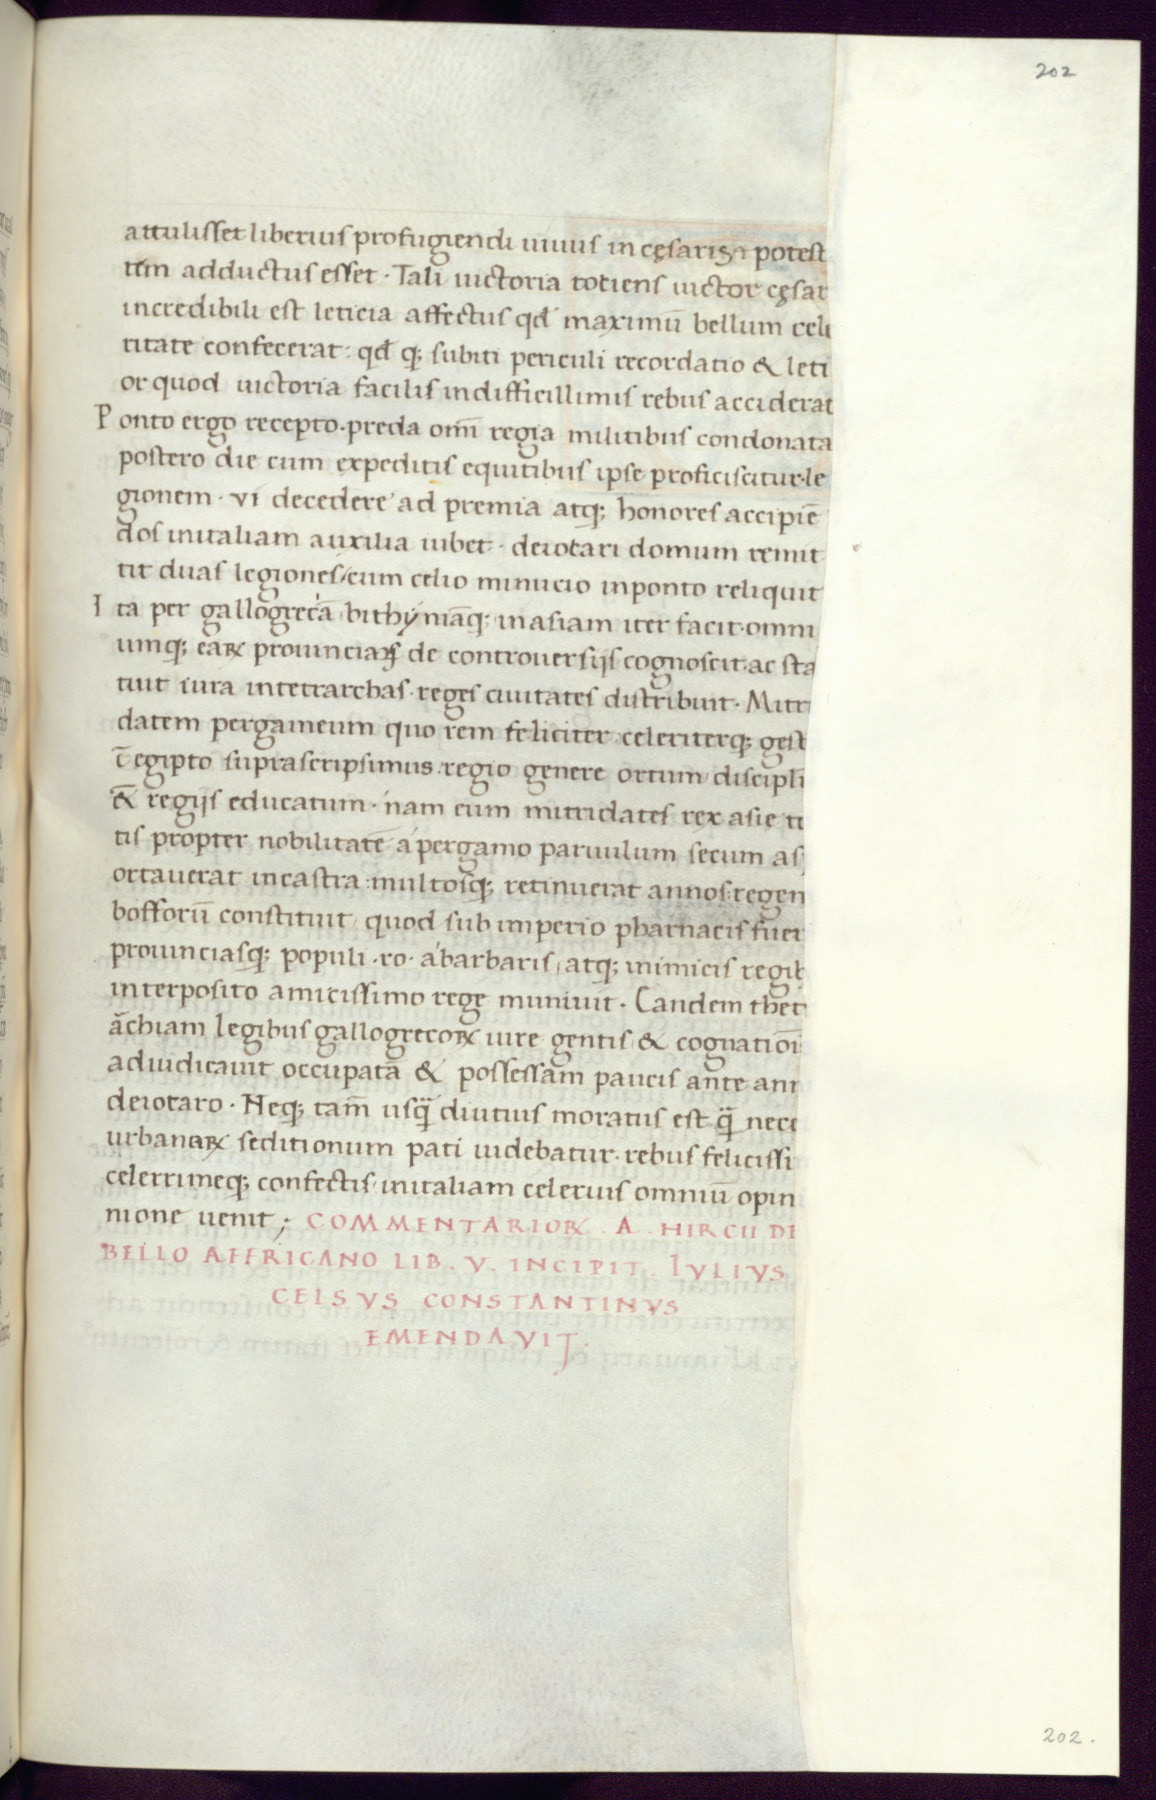 202
attulisset liberius profugiendi uiuus in cęsaris potest
tem adductus esset · Tali uictoria totiens uictor cęsar
incredibili est leticia affectus qđ maximū bellum cele
titate confecerat: qđ q; subiti periculi recordatio & leti
or quod uictoria facilis indifficillimis rebus acciderat
Ponto ergo recepto · preda om̄i regia militibus condonata
postero die cum expeditis equitibus ipse proficiscitur · le
gionem · vi decedere ad premia atq; honores accipiē
dos initaliam auxilia iubet · deiotari domum remit
tit duas legiones cum celio minucio inponto reliquit
Ita per gallogrecā bithyniāq; inasiam iter facit · omni
umq; earꝝ prouinciarꝝ de controuersijs cognoscit · ac sta
tuit iura intetrarchas · reges ciuitates distribuit · Mitr
datem pergameum quo rem feliciter celeriterq; gest
ī egipto suprascripsimus · regio genere ortum discipli
& regijs educatum · nam eum mitridates rex asie ti
tis propter nobilitatē a pergamo paruulum secum as
ortauerat incastra multosq; retinuerat annos: regen
bofforū constituit quod sub imperio pharnacis fuer
prouinciasq; populi · ro · a barbaris, atq; inimicis regib
interposito amicissimo rege muniuit · Eandem thet
āchiam legibus gallogrecoꝝ iure gentis & cognatiōi
adiudicauit occupatā & possessam paucis ante ann
deiotaro · Neq; tam̄ usq̄ diutius moratus est q̄ nece
urbanaꝝ seditionum pati uidebatur · rebus felicissi
celerrimeq; confectis initaliam celerius omniū opin
nione uenit ; COMMENTARIOꝜ · A · HIRCII DE
BELLO AFFRICANO LIB · V · INCIPIT · IVLIVS
CELSVS CONSTANTINVS
EMENDAVIT ·
202 .